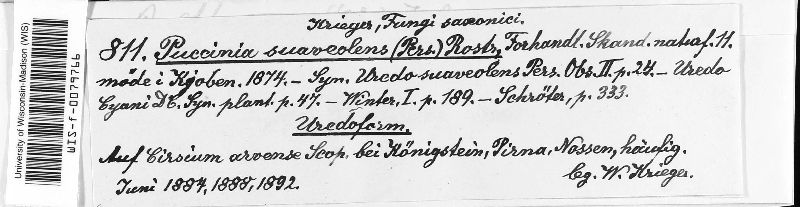 University of Wisconsin-Madison (WIS)
WIS-f-0079766
Krieger, Fungi saxonici.
811. Puccinia suaveolens (Pers.) Rostr., Forhandl. Skand. naturf. 11.
möde i Kjoben. 1874. – Syn. Uredo suaveolens Pers. Obs. II. p. 24. – Uredo
Cyani DC. Syn. plant. p. 47. – Winter, I. p. 189. – Schröter, p. 333.
Uredoform.
Auf Cirsium arvense Scop. bei Königstein, Pirna, Nossen, häufig.
Juni 1884, 1888, 1892.
lg. W. Krieger.